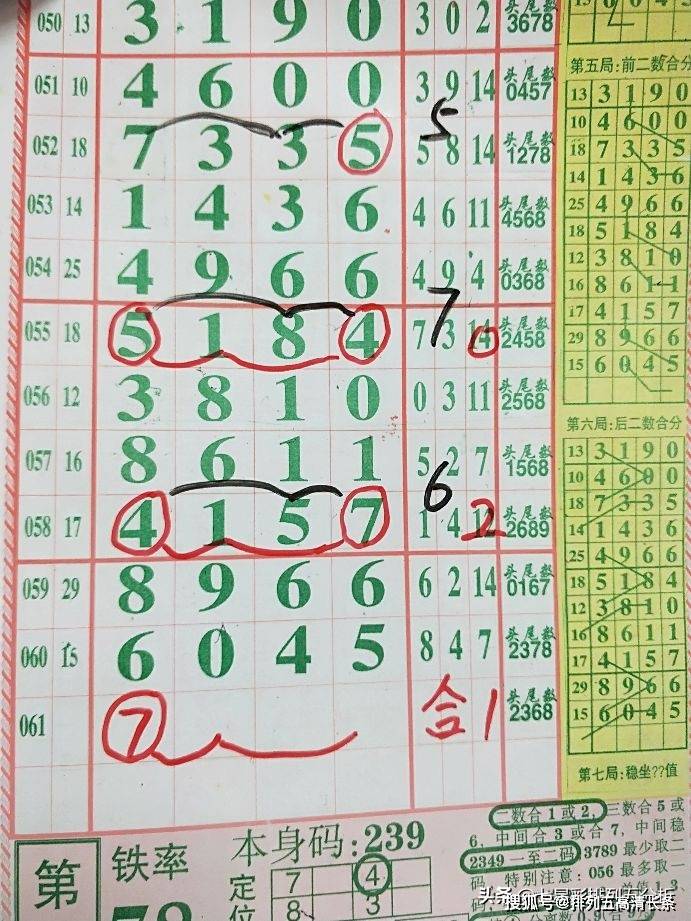 050 13 3 1 9 0 3 0 2 3678
051 10 4 6 0 0 3 9 14 头尾数 0457
5
052 18 7 3 3 5 5 8 14 头尾数 1278
053 14 1 4 3 6 4 6 11 头尾数 4568
054 25 4 9 6 6 4 9 4 头尾数 0368
7
055 18 5 1 8 4 7 3 14 头尾数 2458
0
056 12 3 8 1 0 0 3 11 头尾数 2568
057 16 8 6 1 1 5 2 7 头尾数 1568
6
058 17 4 1 5 7 1 4 头尾数 2689
2
059 29 8 9 6 6 6 2 14 头尾数 0167
060 15 6 0 4 5 8 4 7 头尾数 2378
061 7 合1 头尾数 2368
第五局:前二数合分
13 3 1 9 0
10 4 6 0 0
18 7 3 3 5
14 1 4 3 6
25 4 9 6 6
18 5 1 8 4
12 3 8 1 0
16 8 6 1 1
17 4 1 5 7
29 8 9 6 6
15 6 0 4 5
第六局:后二数合分
13 3 1 9 0
10 4 6 0 0
18 7 3 3 5
14 1 4 3 6
25 4 9 6 6
18 5 1 8 4
12 3 8 1 0
16 8 6 1 1
17 4 1 5 7
29 8 9 6 6
15 6 0 4 5
第七局:稳坐??值
第
铁率
本身码:239
定位
7 4
8 3
二数合1或2,三数合5或
6,中间合3或合7,中间稳
2349一至二码 3789最少取二
特别注意:056最多取一
搜狐号@排列五高清长条